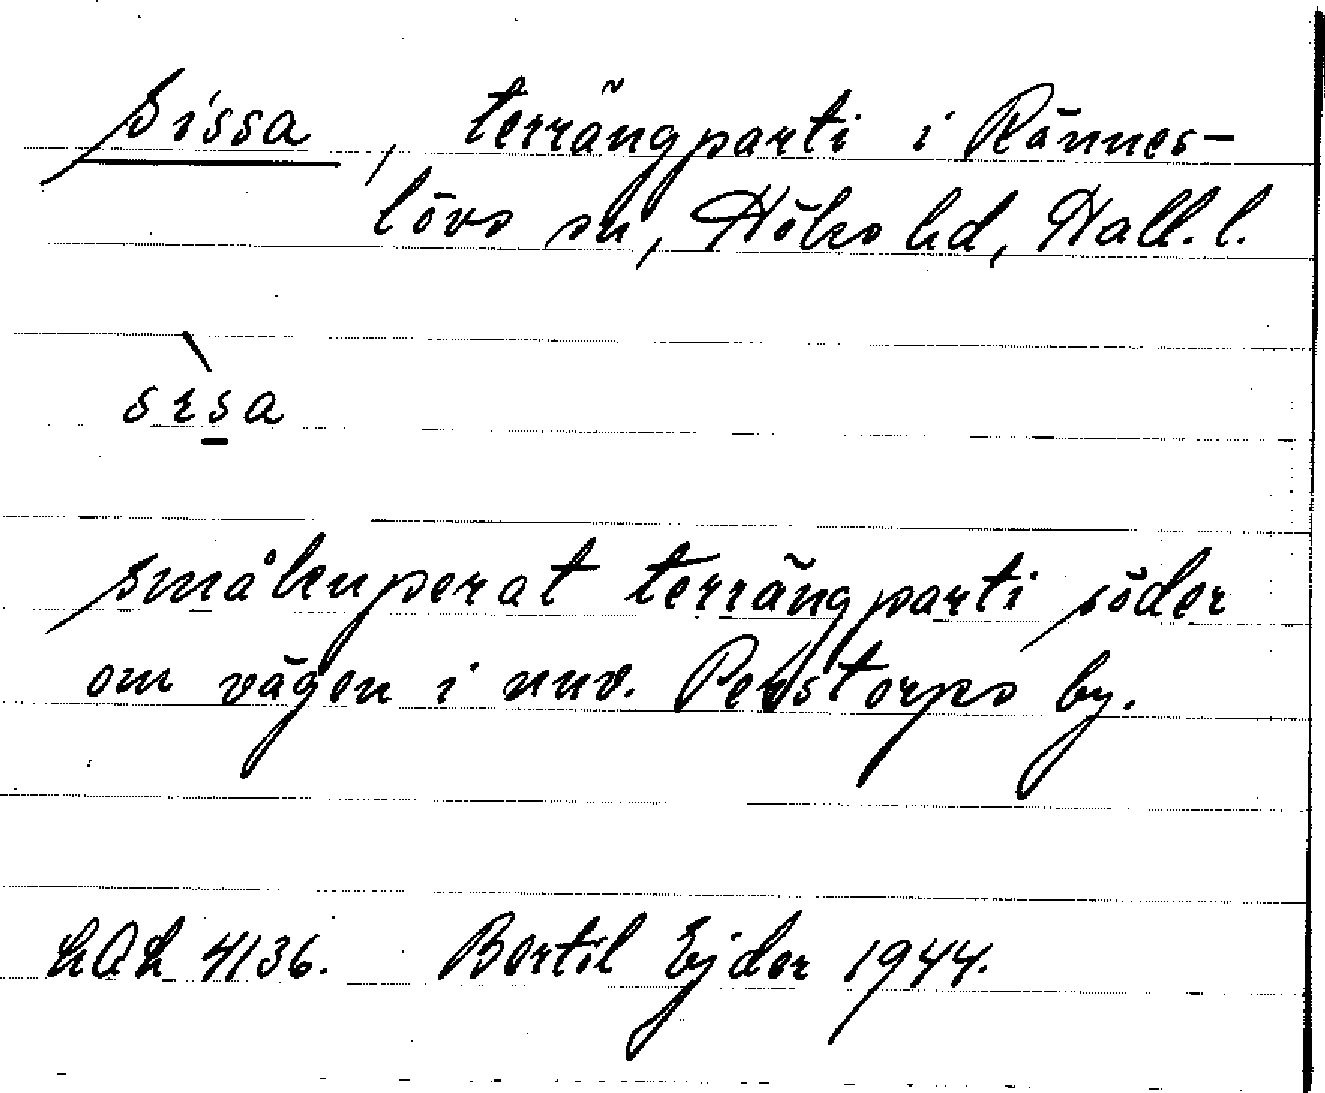 Sissa, terrängparti i Rännes-
lövs sn, Höks hd, Hall. l.
sɪ̀s̱a
småkuperat terrängparti söder
om vägen i nuv. Perstorps by.
LAL 4136. Bertil Ejder 1944.